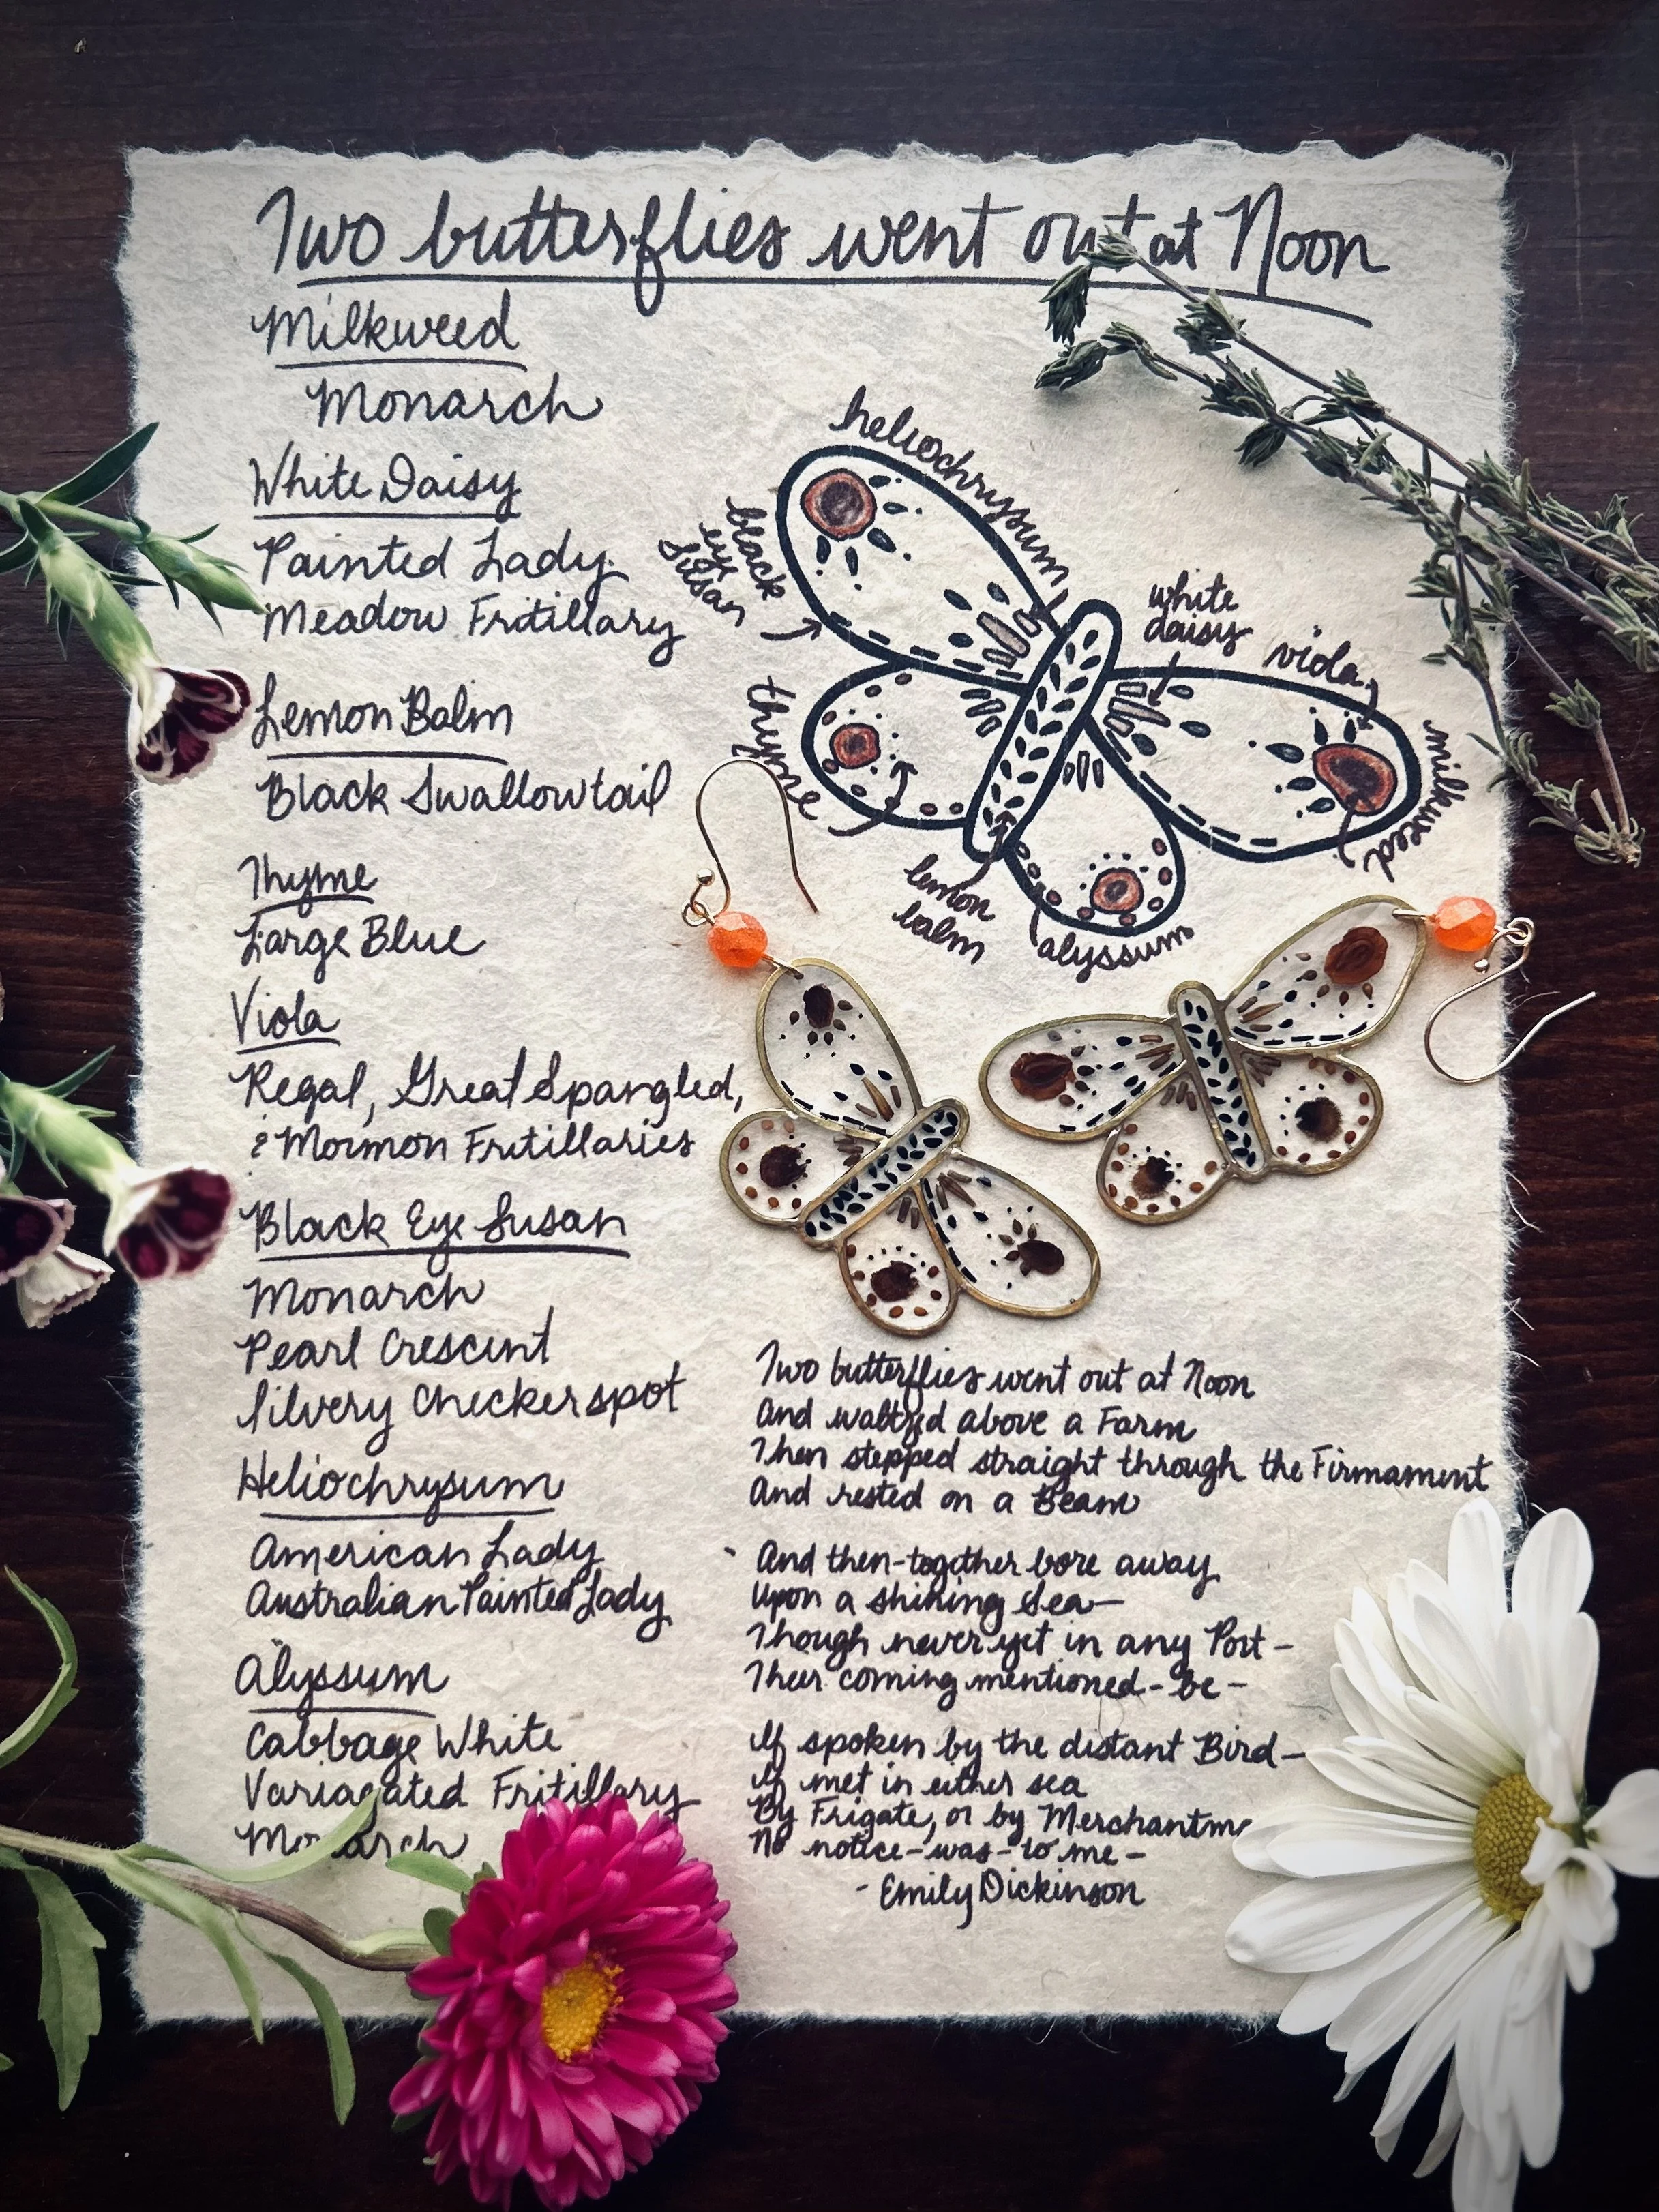 Two butterflies went out at Noon
Milkweed
Monarch
White Daisy
Painted Lady
Meadow Fritillary
Lemon Balm
Black Swallowtail
Thyme
Large Blue
Viola
Regal, Great Spangled,
& Mormon Fritillaries
Black Eye Susan
Monarch
Pearl Crescent
Silvery Checkerspot
Heliochrysum
American Lady
Australian Painted Lady
Alyssum
Cabbage White
Variagated Fritillary
Monarch
heliochrysum
black
eye
susan
white
daisy
viola
thyme
milkweed
lemon
balm
alyssum
Two butterflies went out at Noon
And waltzed above a Farm
Then stepped straight through the Firmament
And rested on a Beam
And then-together bore away
Upon a shining Sea—
Though never yet in any Port—
Their coming mentioned-be—
If spoken by the distant Bird—
If met in either sea
By Frigate, or by Merchantm
No notice-was-to me—
- Emily Dickinson